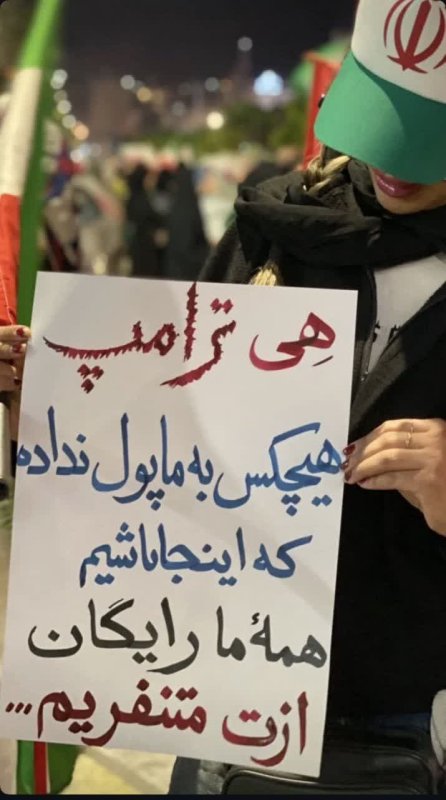 هِی ترامپ
هیچکس به ما پول نداده
که اینجا باشیم
همهٔ ما رایگان
ازت متنفریم...